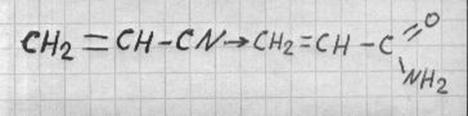 CH2=CH-CN→CH2=CH-C=O
NH2